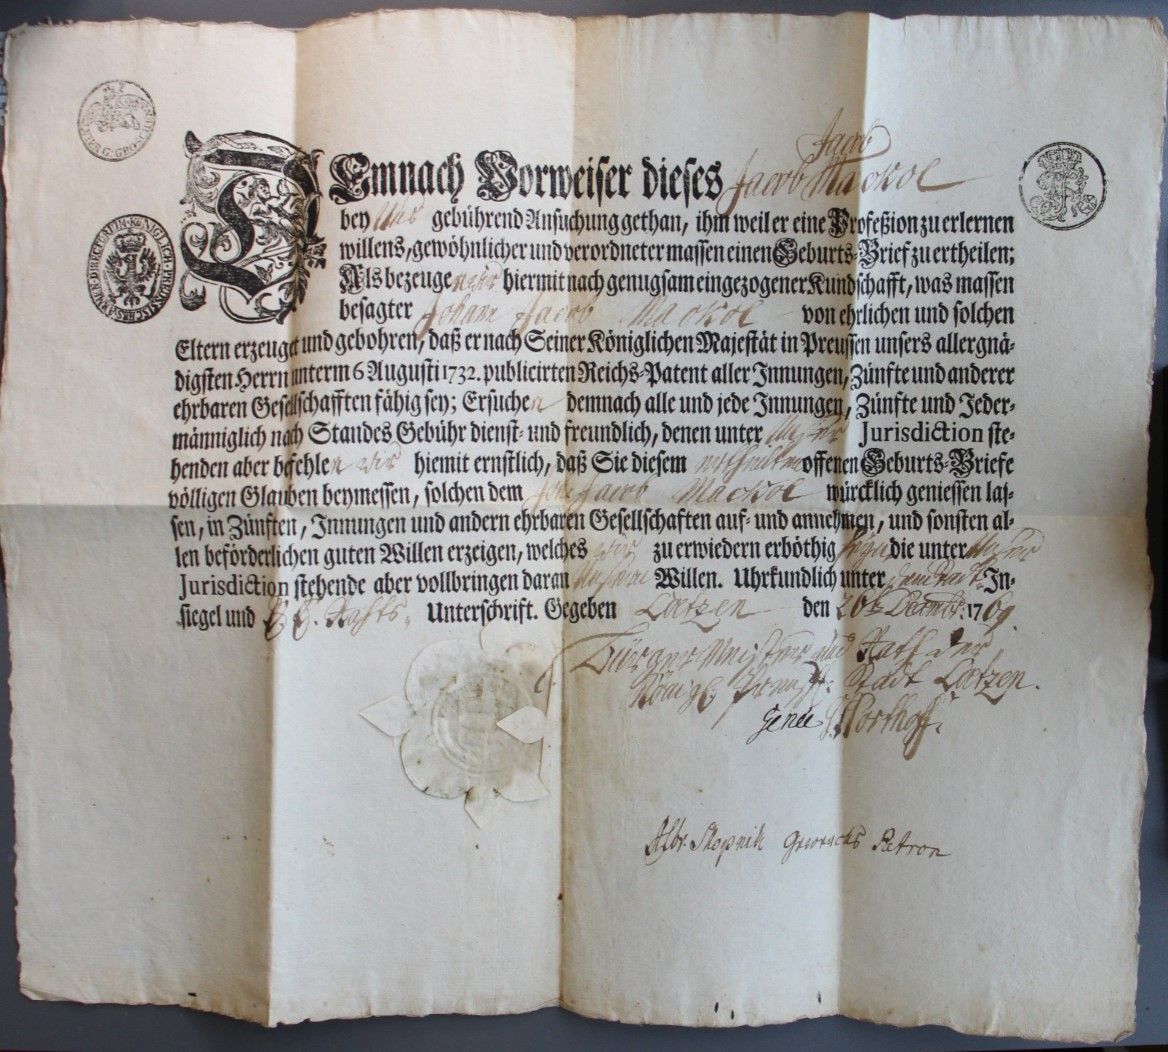 Jacob
DEmnach Vorweiser dieses Jacob Mackol
bey Uns gebührend Ansuchung gethan, ihm weil er eine Profeßion zu erlernen
willens, gewöhnlicher und verordneter massen einen Geburts-Brief zu ertheilen;
Als bezeugen wir hiermit nach genugsam eingezogener Kundschafft, was massen
besagter Johann Jacob Mackol von ehrlichen und solchen
Eltern erzeuget und gebohren, daß er nach Seiner Königlichen Majestät in Preussen unsers allergnä-
digsten Herrn unterm 6 Augusti 1732. publicirten Reichs-Patent aller Innungen, Zünfte und anderer
ehrbaren Gesellschafften fähig sey; Ersuchen demnach alle und jede Innungen, Zünfte und Jeder-
männiglich nach Standes Gebühr dienst- und freundlich, denen unter Unser Jurisdiction ste-
henden aber befehlen wir hiemit ernstlich, daß Sie diesem ertheilten offenen Geburts-Briefe
völligen Glauben beymessen, solchen dem Joh: Jacob Mackol würcklich geniessen las-
sen, in Zünften, Innungen und andern ehrbaren Gesellschaften auf- und annehmen, und sonsten al-
len beförderlichen guten Willen erzeigen, welches wir zu erwiedern erböthig die unter Unser
Jurisdiction stehende aber vollbringen daran Unsern Willen. Uhrkundlich unter dem Stadt In-
siegel und E. E. Rahts Unterschrift. Gegeben Loetzen den 20t Decembr: 1769.
Bürger Meister und Rath der
Königl. Preuss: Stadt Loetzen.
Genée Northoff.
Albr: Skopnik Gewercks Patron